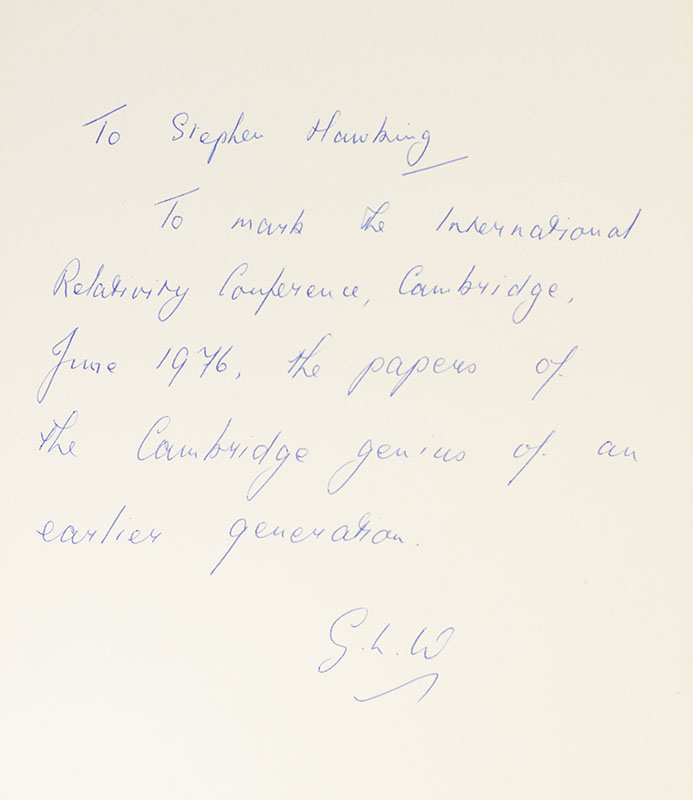 To Stephen Hawking
To mark the International
Relativity Conference, Cambridge,
June 1976, the papers of
the Cambridge genius of an
earlier generation.
G.L.W